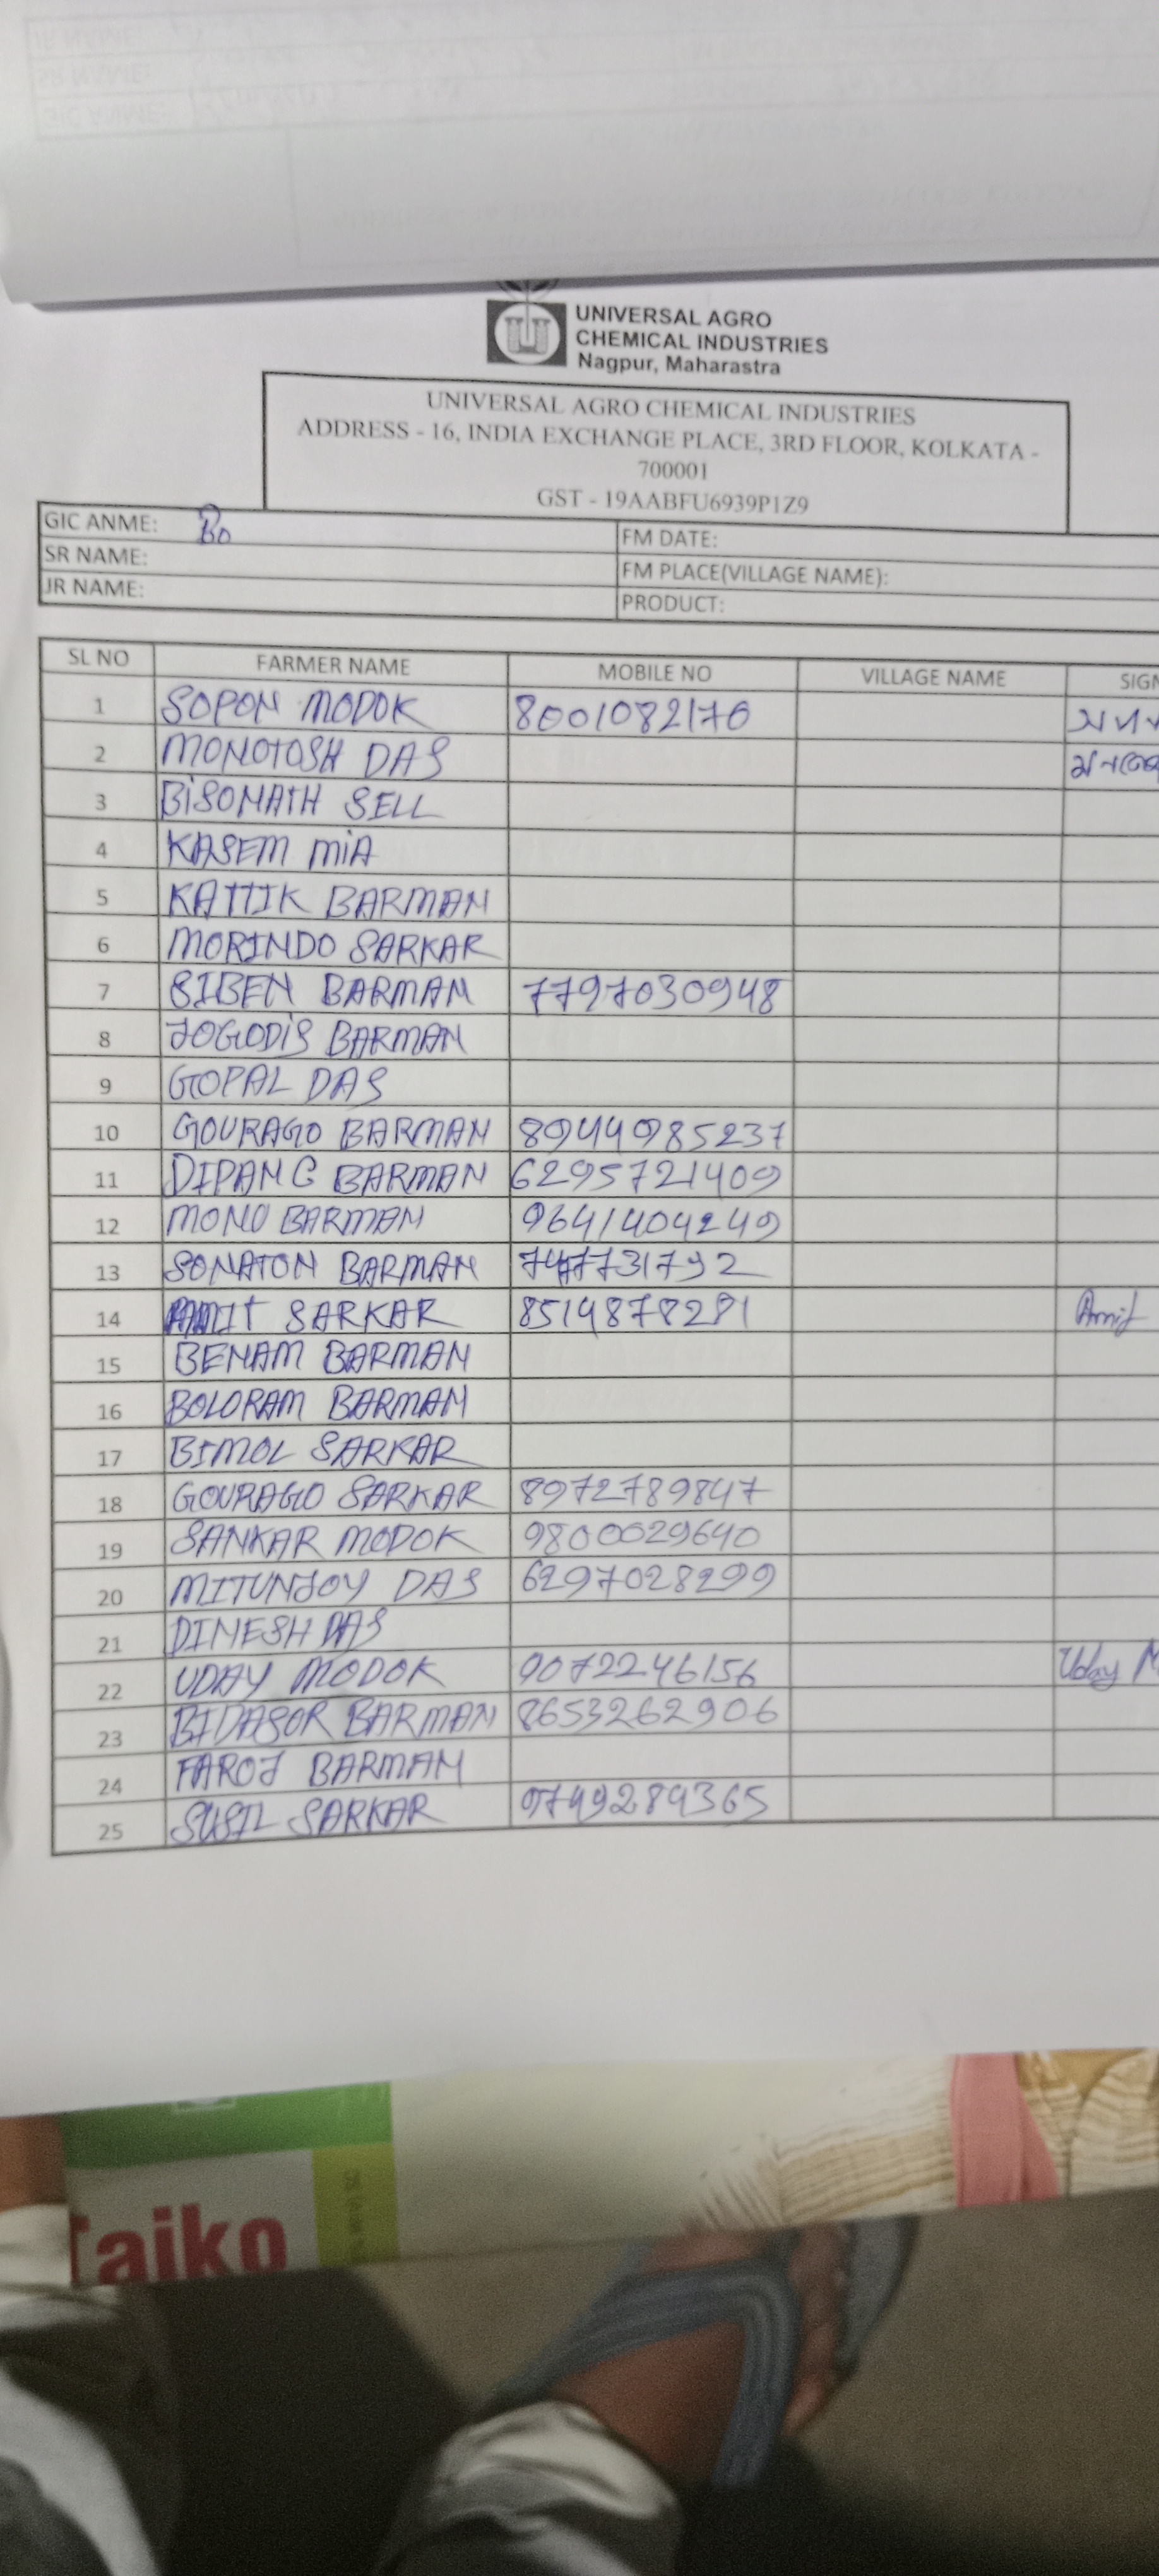 UNIVERSAL AGRO
CHEMICAL INDUSTRIES
Nagpur, Maharastra
UNIVERSAL AGRO CHEMICAL INDUSTRIES
ADDRESS - 16, INDIA EXCHANGE PLACE, 3RD FLOOR, KOLKATA -
700001
GST - 19AABFU6939P1Z9
GIC ANME: Bo FM DATE:
SR NAME: FM PLACE(VILLAGE NAME):
JR NAME: PRODUCT:
SL NO FARMER NAME MOBILE NO VILLAGE NAME SIGN
1 SOPON MODOK 8001082170
2 MONOTOSH DAS
3 BISONATH SELL
4 KASEM MIA
5 KATTIK BARMAN
6 MORINDO SARKAR
7 SIBEN BARMAN 7797030948
8 JOGODIS BARMAN
9 GOPAL DAS
10 GOURAGO BARMAN 8944985237
11 DIPANC BARMAN 6295721409
12 MONO BARMAN 9641404249
13 SONATON BARMAN
14 AMIT SARKAR 8514878281 Amit
15 BENAM BARMAN
16 BOLORAM BARMAN
17 BIMOL SARKAR
18 GOURAGO SARKAR 8972789847
19 SANKAR MODOK 9800029640
20 MITUNJOY DAS 6297028299
21 DINESH DAS
22 UDAY MODOK 9072246156 Uday M
23 BIDASOR BARMAN 8653262906
24 FAROJ BARMAN
25 SUSIL SARKAR 9749289365
Taiko